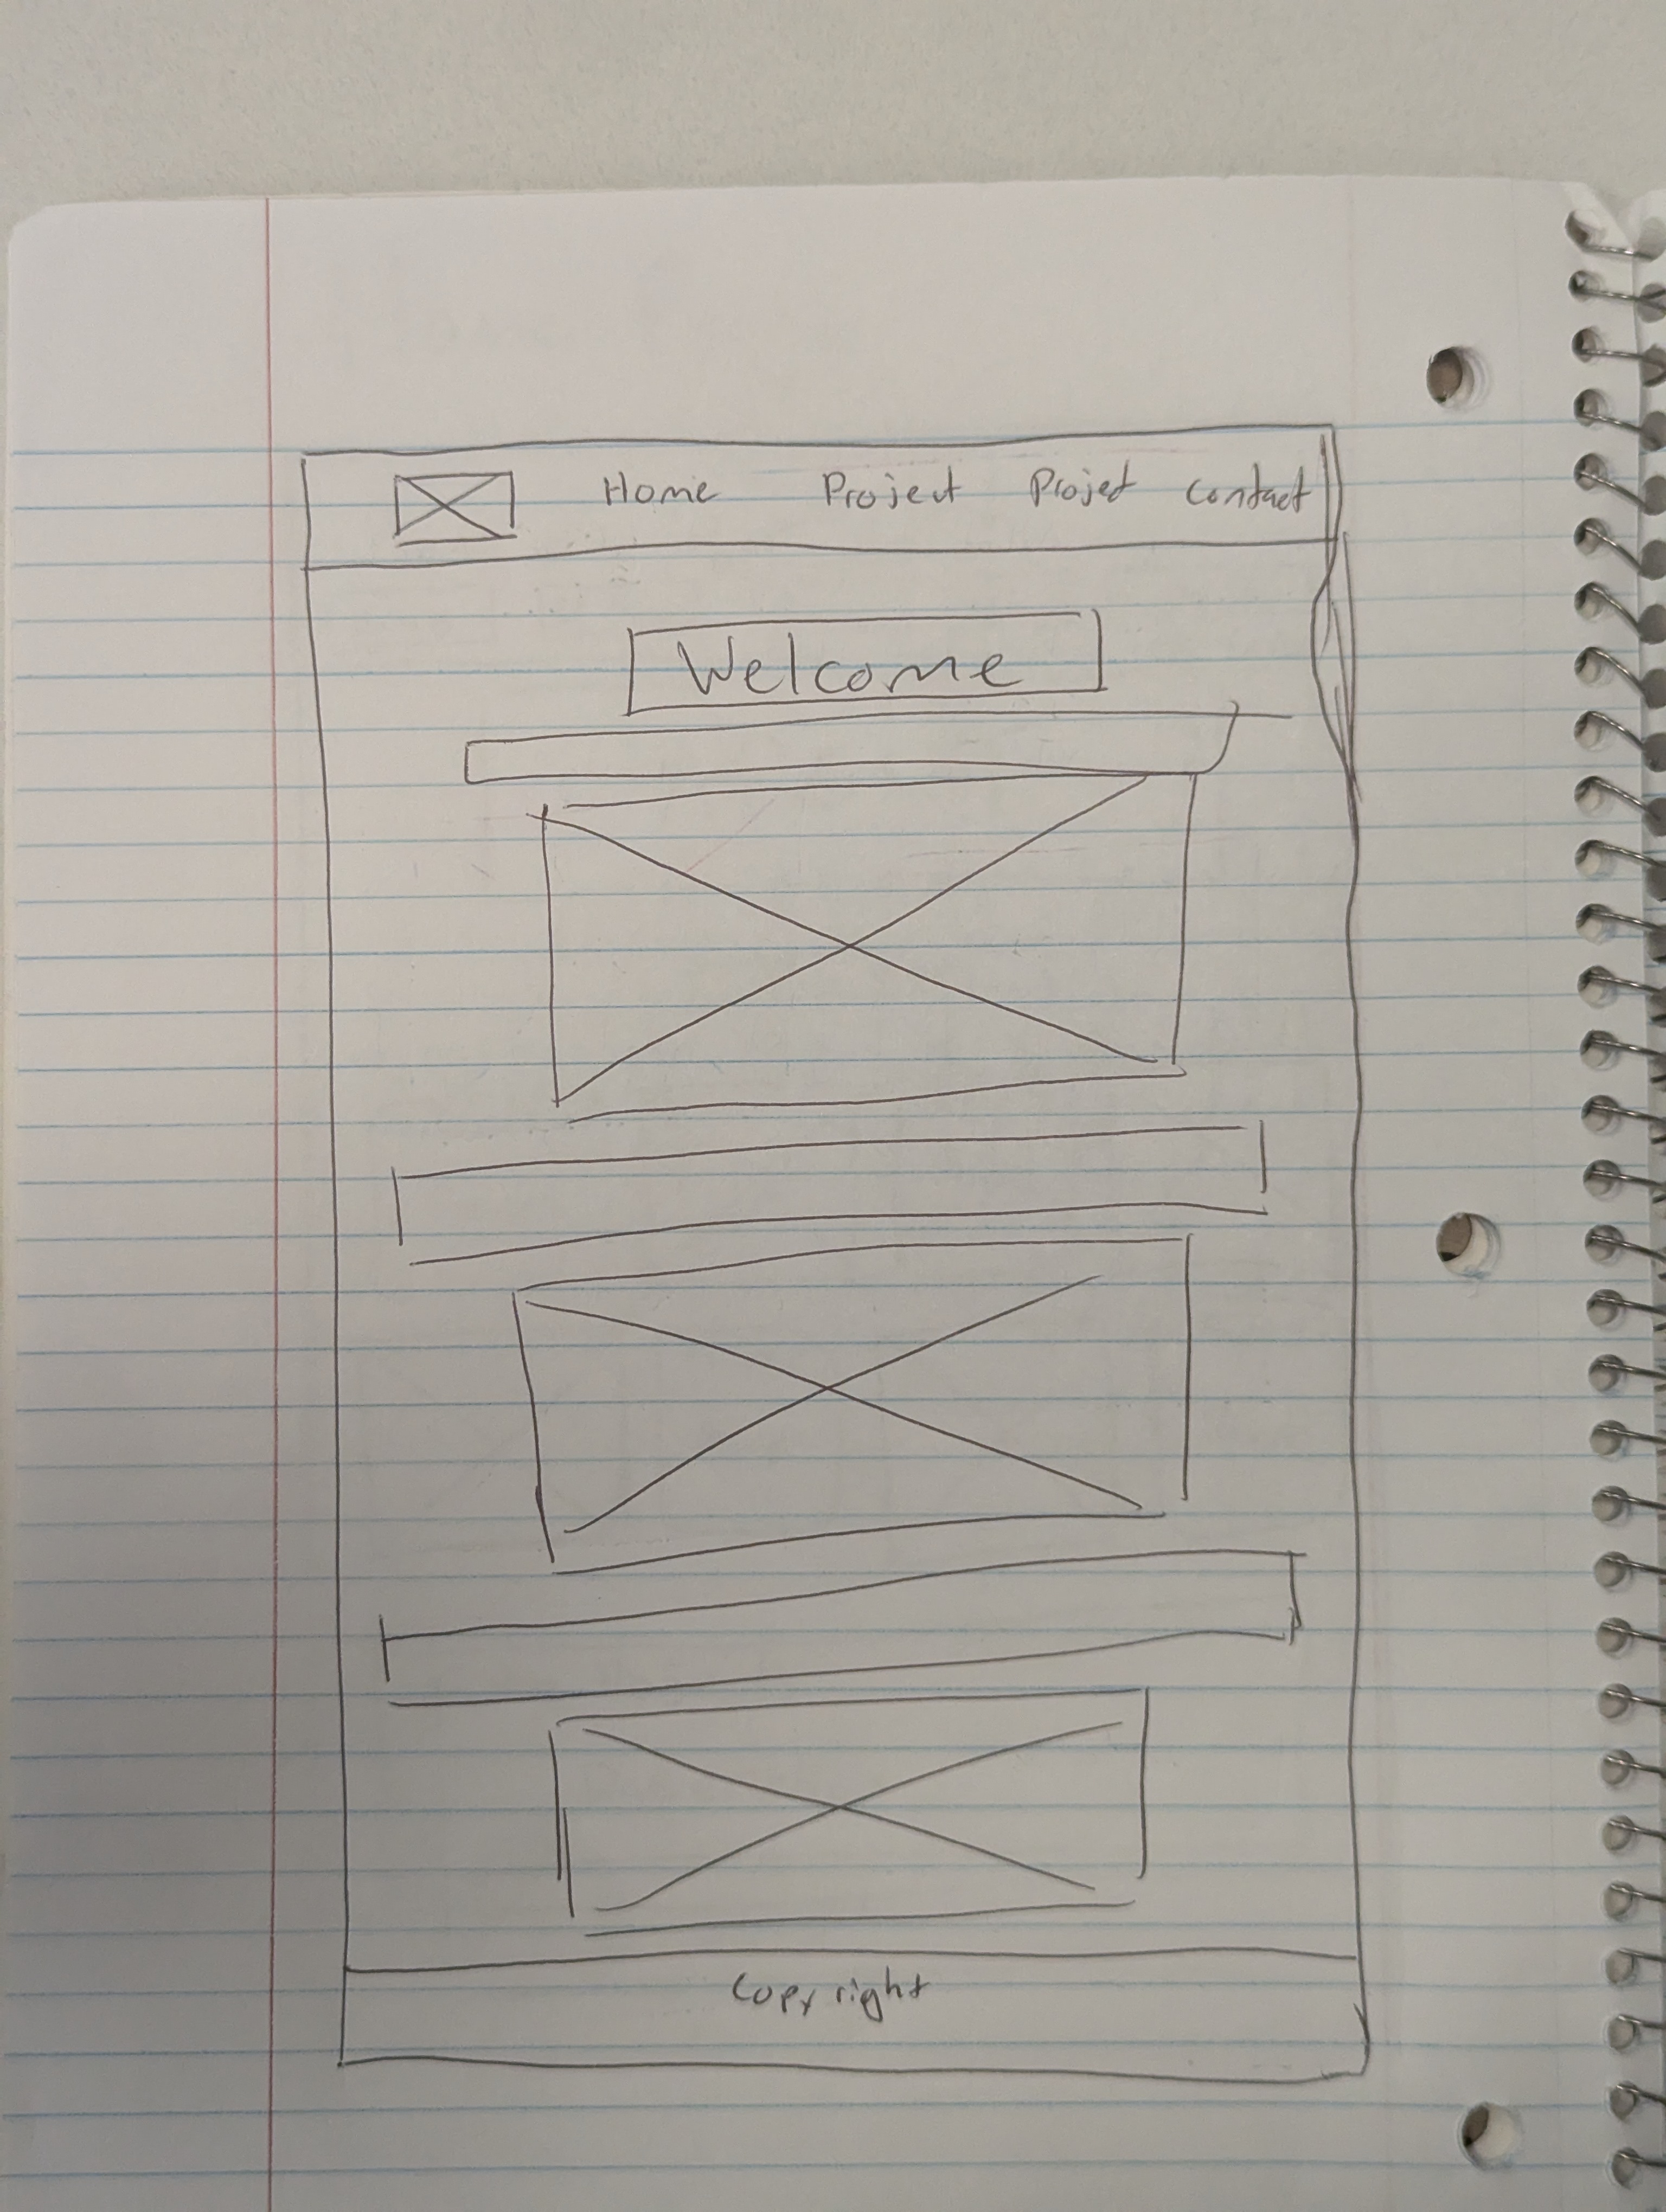 Home Project Project Contact
Welcome
Copyright